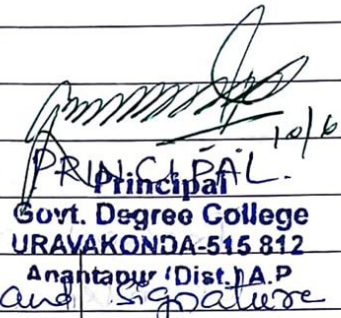 10/6
PRINCIPAL.
Principal
Govt. Degree College
URAVAKONDA-515 812
Anantapur (Dist.) A.P
and Signature